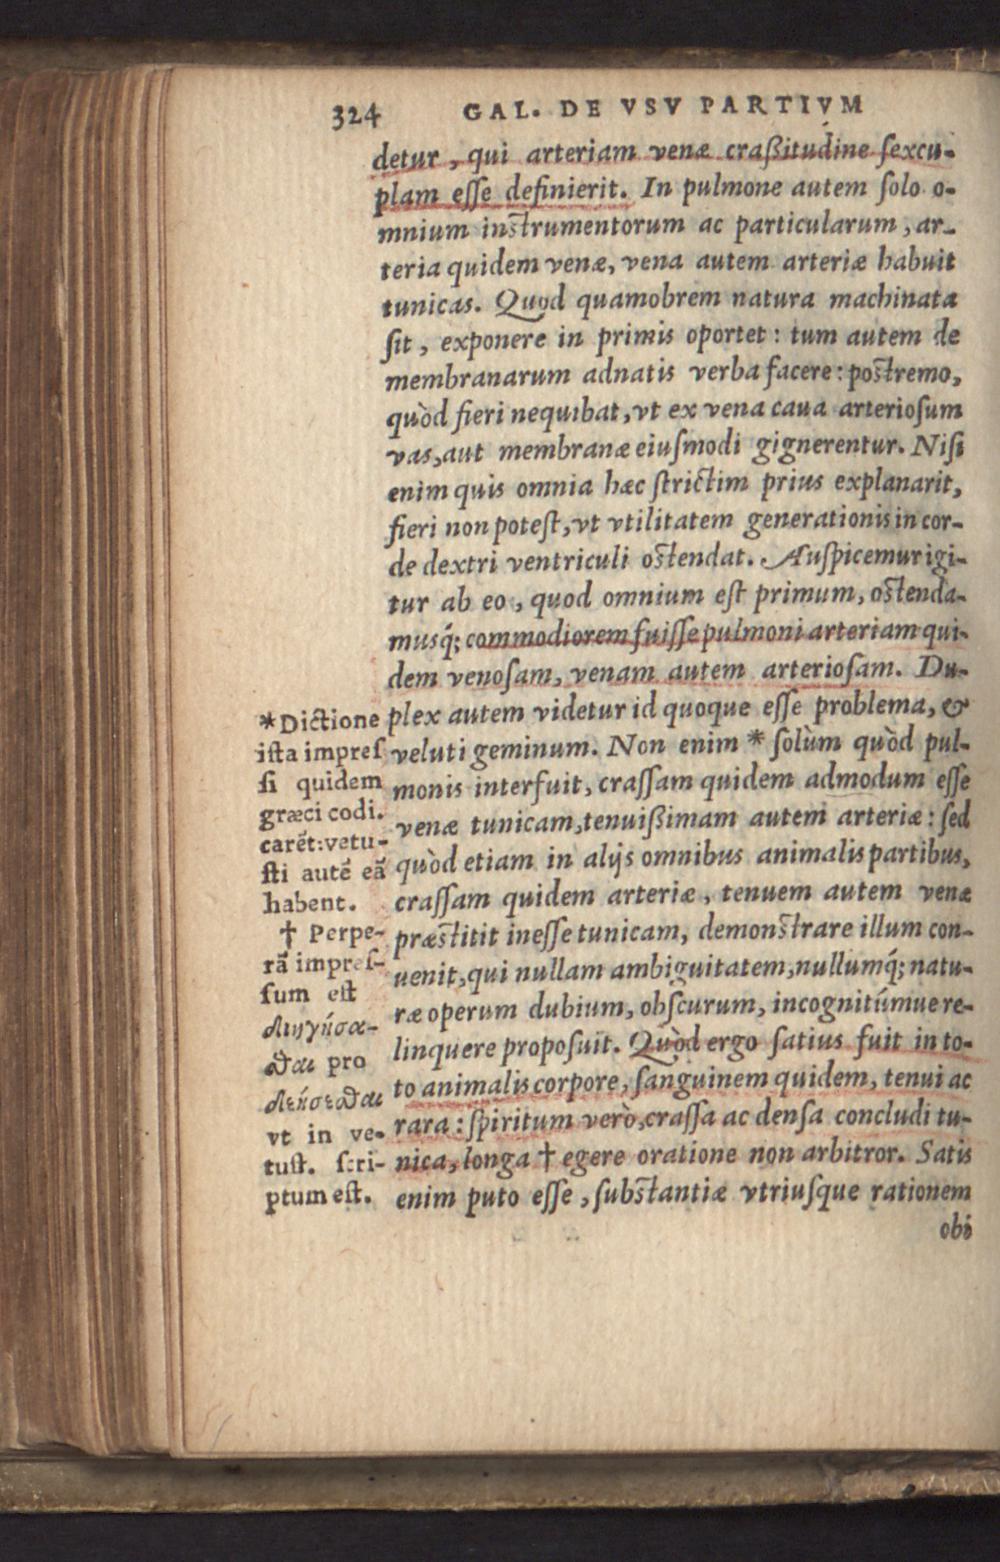 324 GAL. DE VSV PARTIVM
detur, qui arteriam venæ craßitudine sexcu-
plam esse definierit. In pulmone autem solo o-
mnium instrumentorum ac particularum, ar-
teria quidem venæ, vena autem arteriæ habuit
tunicas. Quod quamobrem natura machinata
sit, exponere in primis oportet: tum autem de
membranarum adnatis verba facere: postremo,
quòd fieri nequibat, vt ex vena caua arteriosum
vas, aut membranæ eiusmodi gignerentur. Nisi
enim quis omnia hæc strictim prius explanarit,
fieri non potest, vt vtilitatem generationis in cor-
de dextri ventriculi ostendat. Auspicemur igi-
tur ab eo, quod omnium est primum, ostenda-
musq́; commodiorem fuisse pulmoni arteriam qui-
dem venosam, venam autem arteriosam. Du-
plex autem videtur id quoque esse problema, &
veluti geminum. Non enim * solùm quòd pul-
monis interfuit, crassam quidem admodum esse
venæ tunicam, tenuißimam autem arteriæ: sed
quòd etiam in alijs omnibus animalis partibus,
crassam quidem arteriæ, tenuem autem venæ
præstitit inesse tunicam, demonstrare illum con-
uenit, qui nullam ambiguitatem, nullumq́; natu-
ræ operum dubium, obscurum, incognitúmue re-
linquere proposuit. Quòd ergo satius fuit in to-
to animalis corpore, sanguinem quidem, tenui ac
rara: spiritum verò, crassa ac densa concludi tu-
nica, longa † egere oratione non arbitror. Satis
enim puto esse, substantiæ vtriusque rationem
obi
*Dictione
ista impres
si quidem
græci codi.
carẽt: vetu-
sti autẽ eã
habent.
† Perpe-
rã impres-
sum est
διηγήσα-
σθαι pro
δεήσεσθαι
vt in ve-
tust. scri-
ptum est.